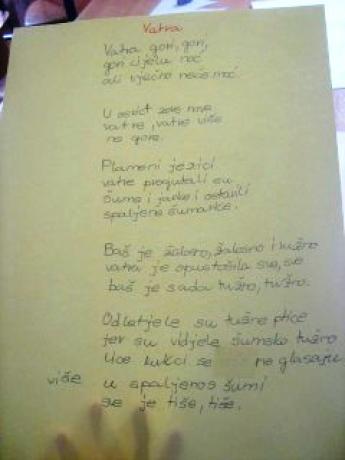 Vatra
Vatra gori, gori,
gori cijelu noć
ali vječno neće moć.
U osvit zore nove
vatre, vatre više
ne gore.
Plameni jezici
vatre progutali su
šume i jarke i ostavili
spaljene šumarke.
Baš je žalosno, žalosno i tužno
vatra je opustošila sve, sve
baš je sada tužno, tužno.
Odletjele su tužne ptice
jer su vidjele šumsko tužno
lice kukci se ne glasaju
više u spaljenoj šumi
sve je tiše, tiše.